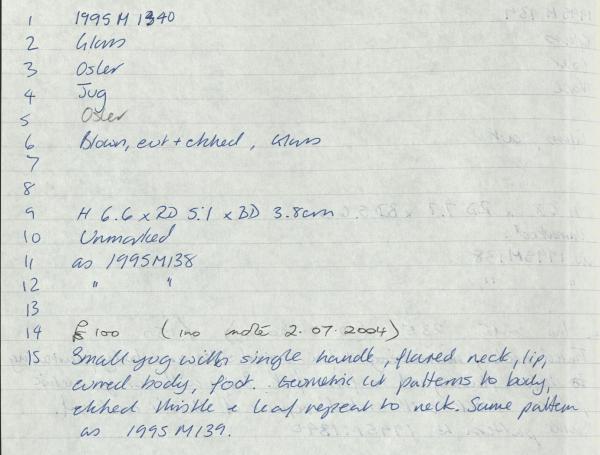 1 1995 M 1340
2 Glass
3 Osler
4 Jug
5 Osler
6 Blown, cut + etched, Glass
7
8
9 H 6.6 x RD 5.1 x BD 3.8cm
10 Unmarked
11 as 1995M138
12 " "
13
14 £100 (ino note 2.07.2004)
15 Small jug with single handle, flared neck, lip,
curved body, foot. Geometric cut patterns to body,
etched thistle & leaf repeat to neck. Same pattern
as 1995M139.